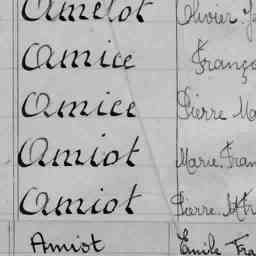 Amelot Olivier
Amice França
Amice Pierre Ma
Amiot Marie Fran
Amiot Pierre
Amiot Emile Fra